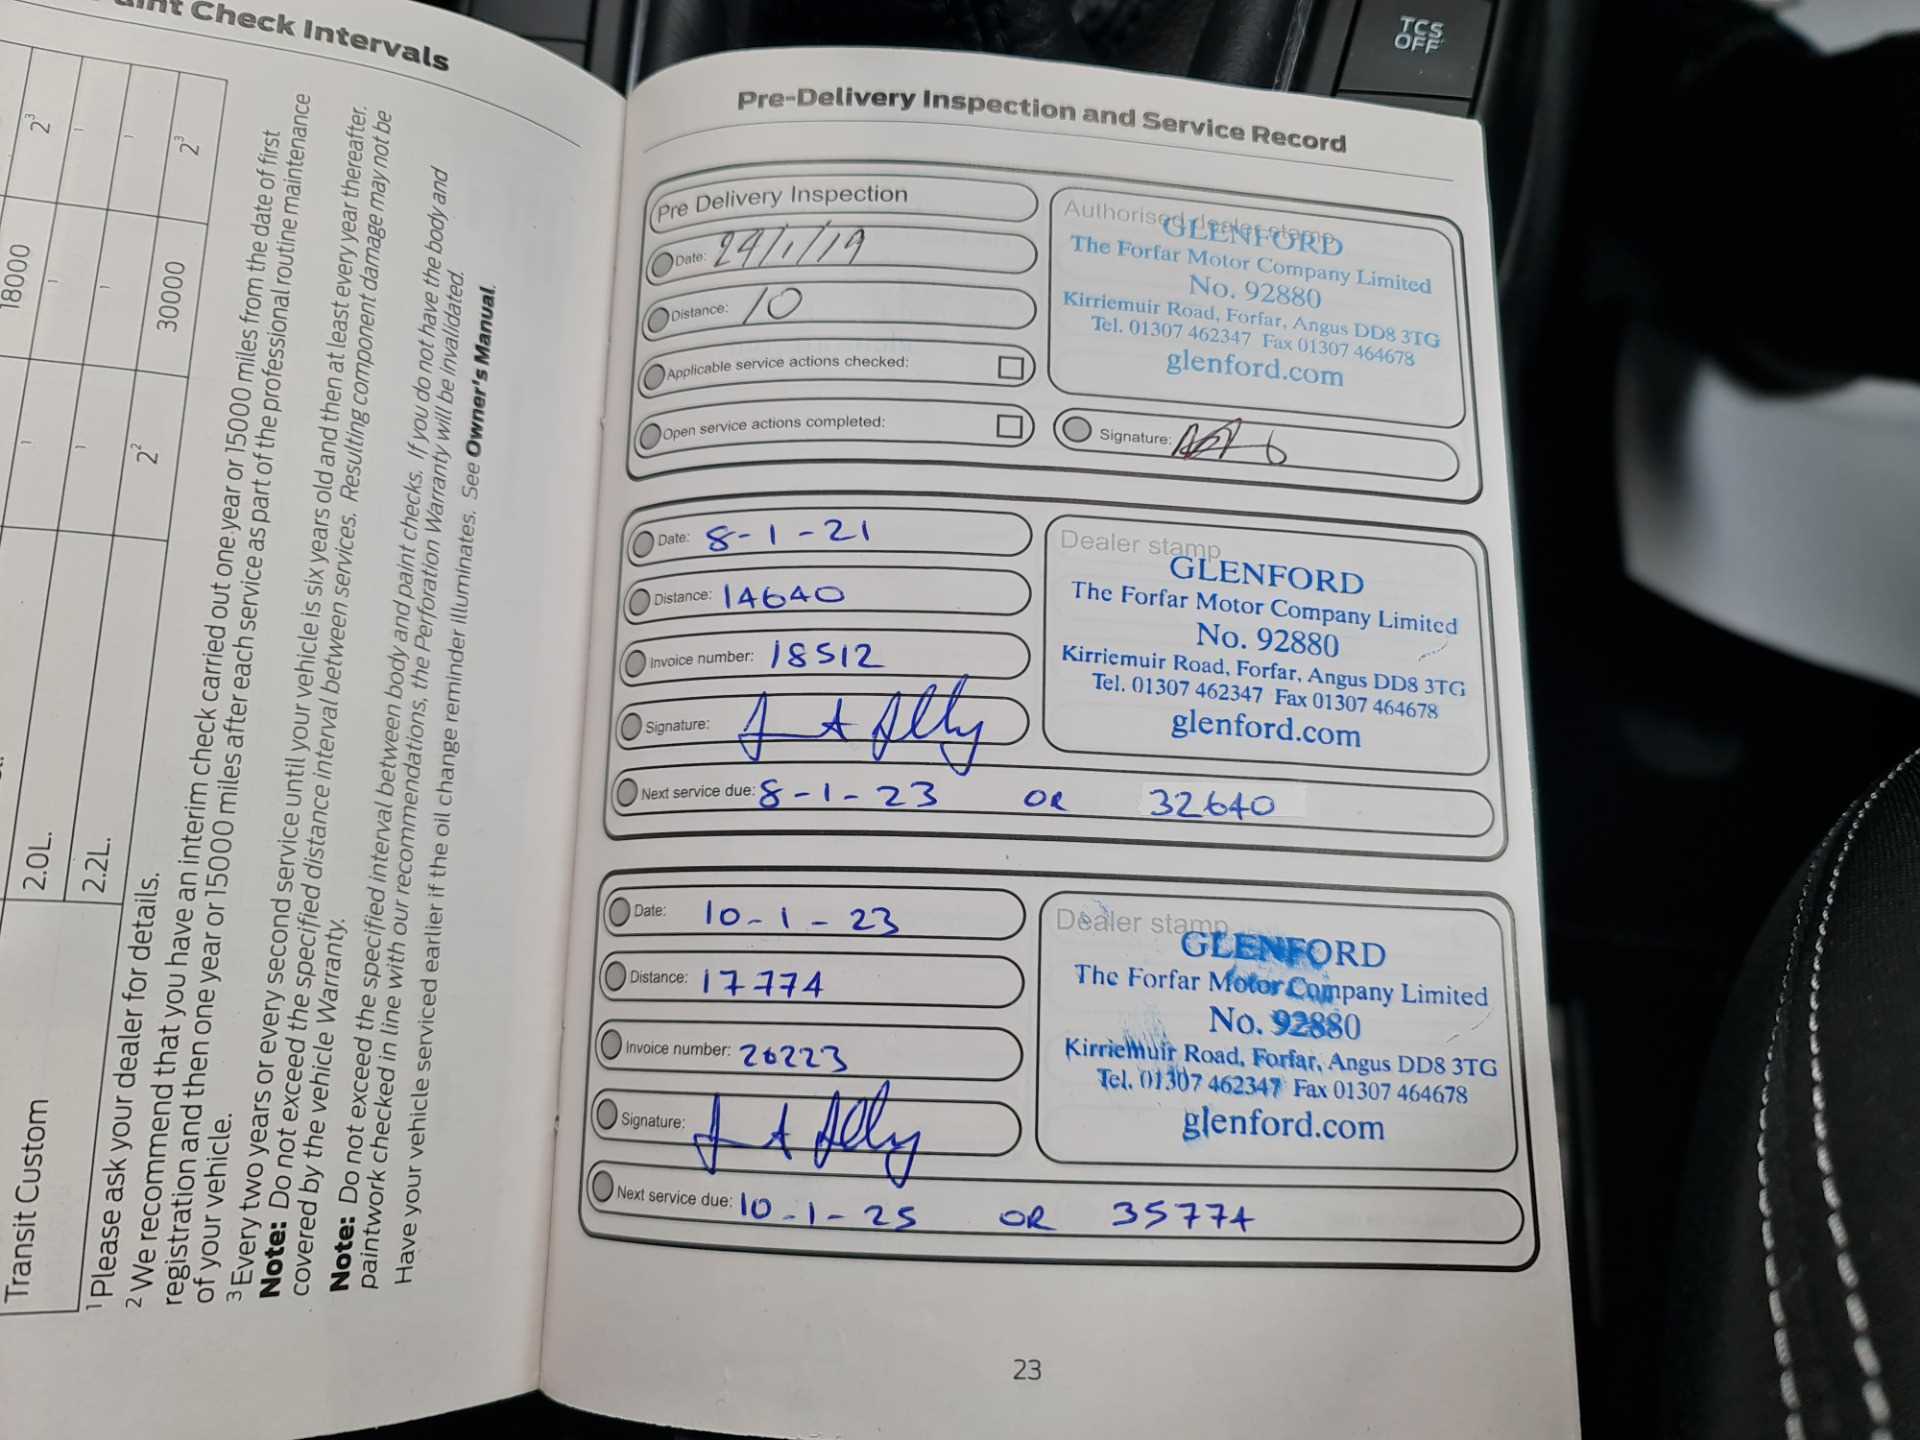 aint Check Intervals
18000
2³
1
1
1
1
1
1
30000
2²
2³
2.0L.
2.2L.
Transit Custom
¹ Please ask your dealer for details.
² We recommend that you have an interim check carried out one year or 15000 miles from the date of first
registration and then one year or 15000 miles after each service as part of the professional routine maintenance
of your vehicle.
³ Every two years or every second service until your vehicle is six years old and then at least every year thereafter.
Note: Do not exceed the specified distance interval between services. Resulting component damage may not be
covered by the vehicle Warranty.
Note: Do not exceed the specified interval between body and paint checks. If you do not have the body and
paintwork checked in line with our recommendations, the Perforation Warranty will be invalidated.
Have your vehicle serviced earlier if the oil change reminder illuminates. See Owner's Manual.
TCS
OFF
Pre-Delivery Inspection and Service Record
Pre Delivery Inspection
Date: 29/1/19
Distance: 10
Applicable service actions checked:
Open service actions completed:
Authorised dealer stamp
GLENFORD
The Forfar Motor Company Limited
No. 92880
Kirriemuir Road, Forfar, Angus DD8 3TG
Tel. 01307 462347 Fax 01307 464678
glenford.com
Signature:
Date: 8-1-21
Distance: 14640
Invoice number: 18512
Signature:
Dealer stamp
GLENFORD
The Forfar Motor Company Limited
No. 92880
Kirriemuir Road, Forfar, Angus DD8 3TG
Tel. 01307 462347 Fax 01307 464678
glenford.com
Next service due: 8-1-23 OR 32640
Date: 10-1-23
Distance: 17774
Invoice number: 26223
Signature:
Dealer stamp
GLENFORD
The Forfar Motor Company Limited
No. 92880
Kirriemuir Road, Forfar, Angus DD8 3TG
Tel. 01307 462347 Fax 01307 464678
glenford.com
Next service due: 10-1-25 OR 35774
23